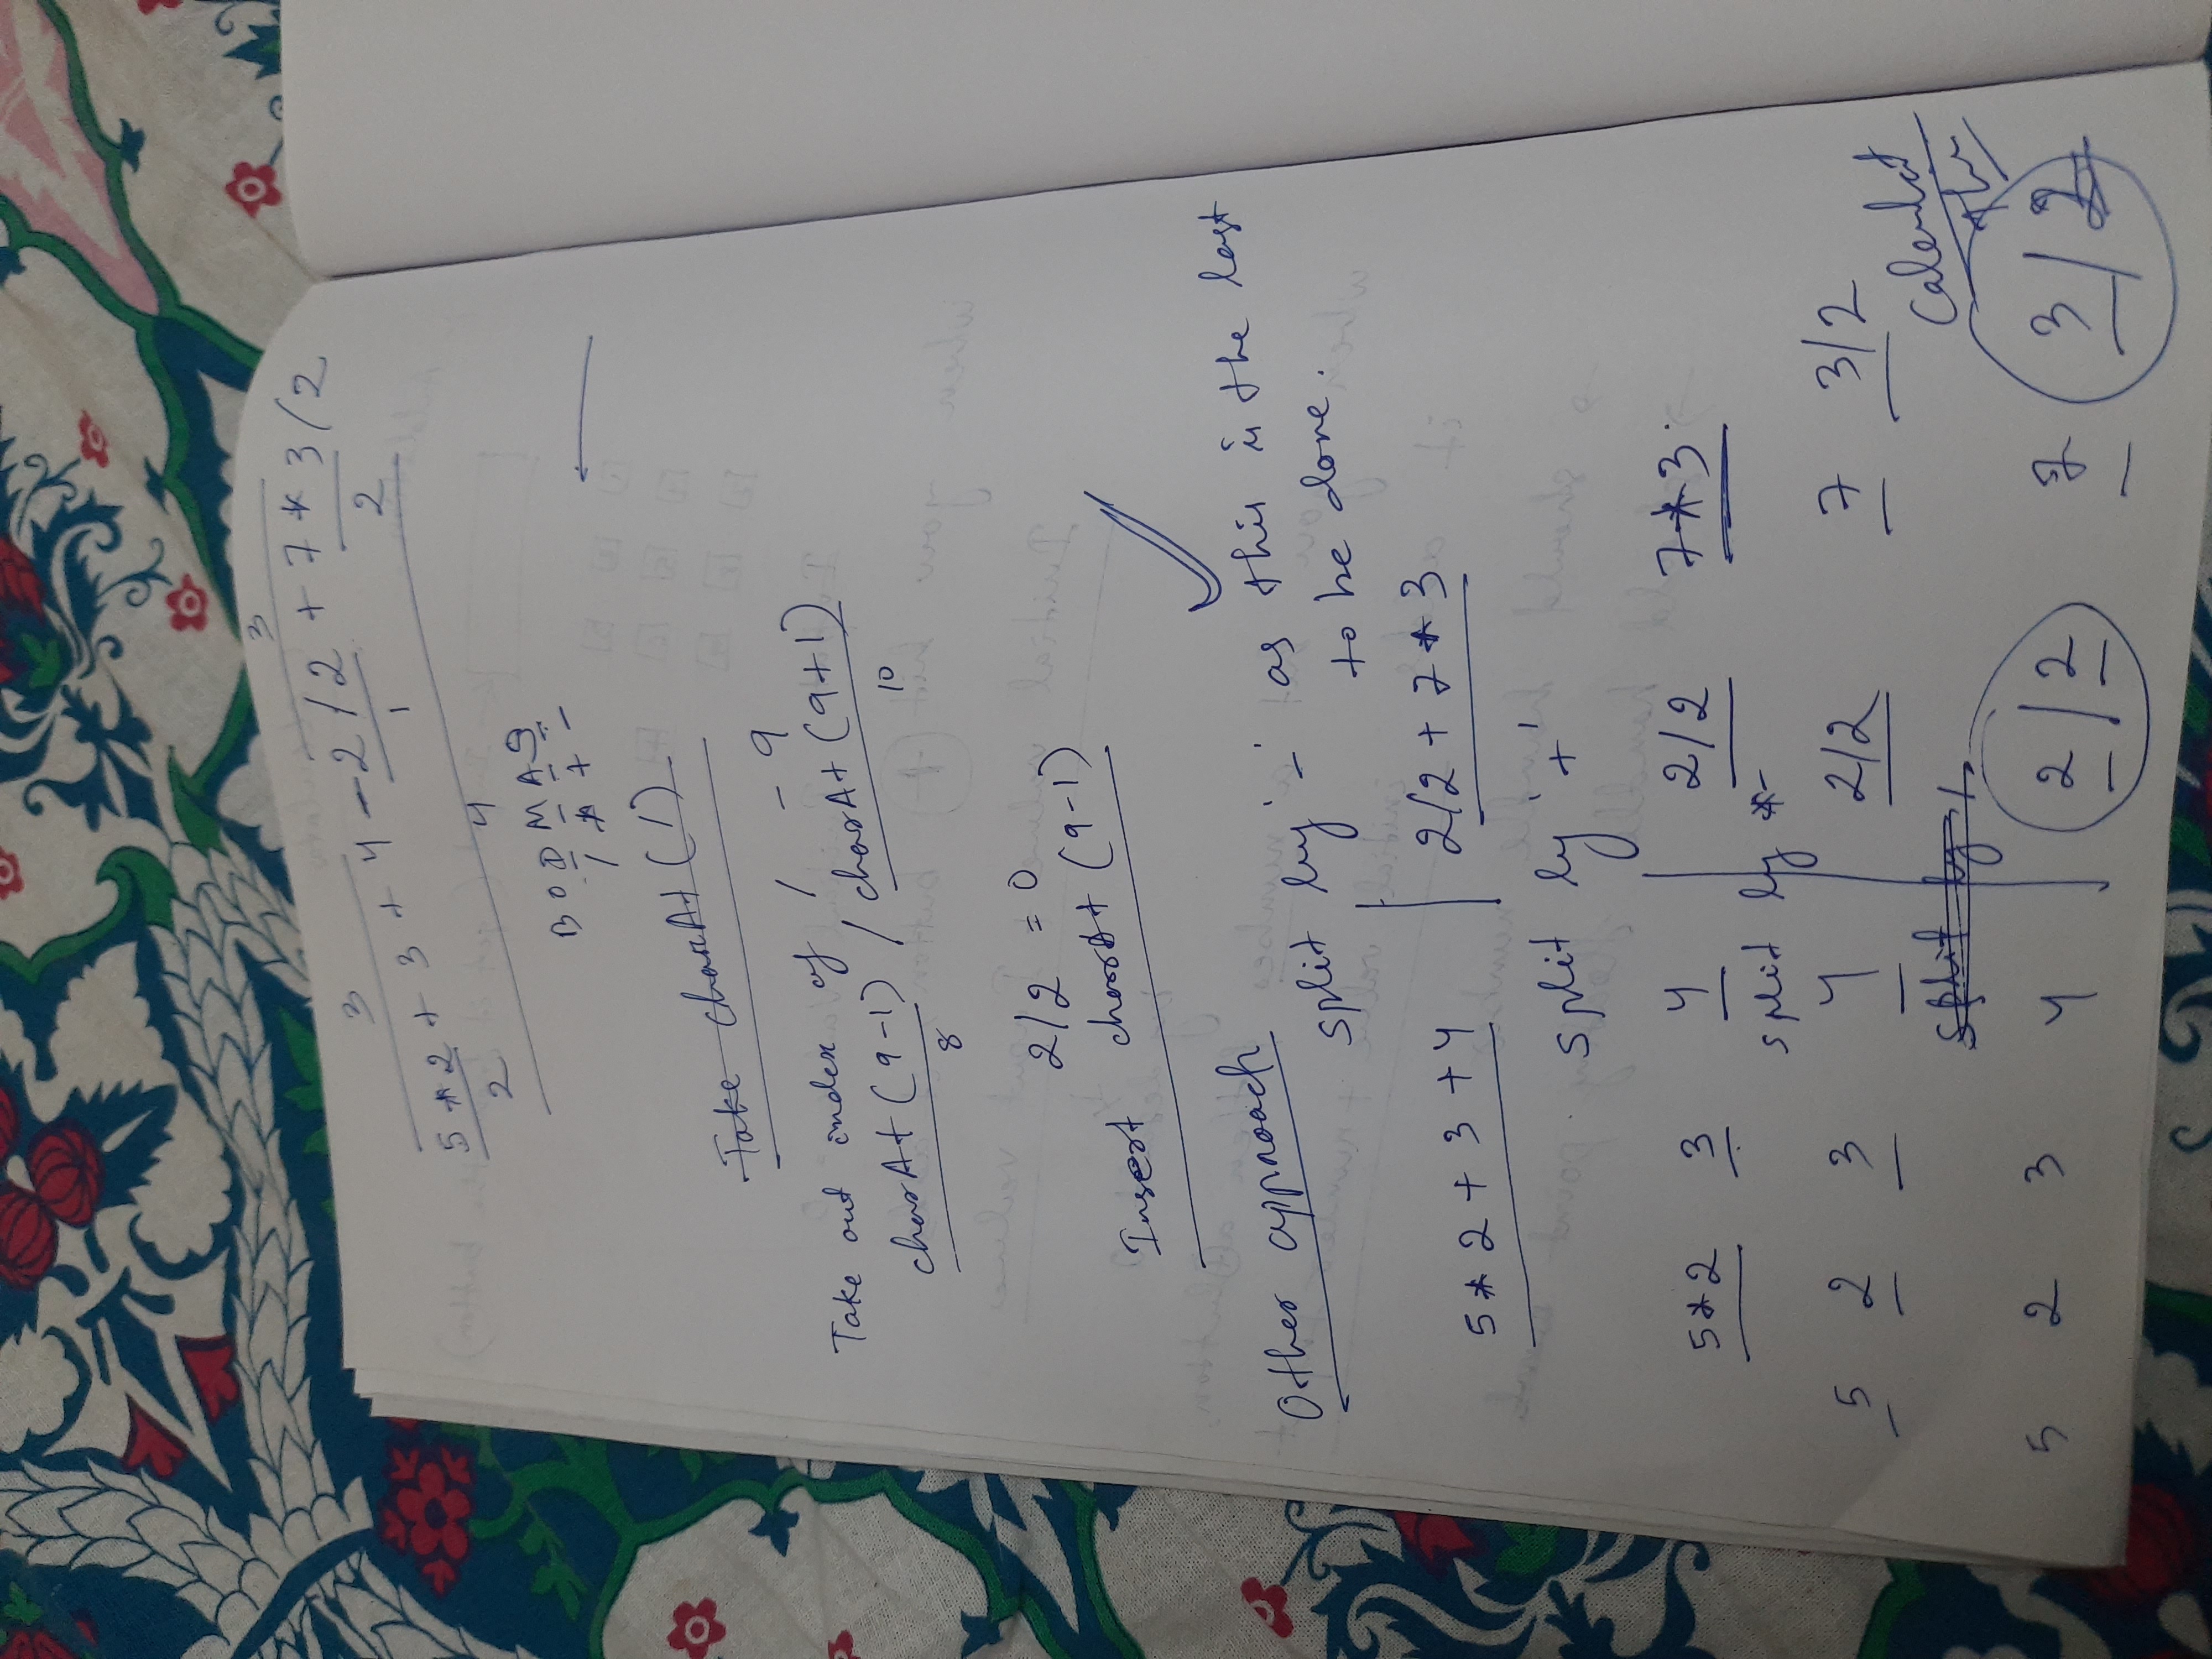 3 3
5*2 + 3 + 4 - 2/2 + 7*3/2
2 1 2
4
BODMAS
/ * + -
Take charAt (1)
Take out index of / - 9
charAt (9-1) / charAt (9+1)
8 10
2/2 = 0
Insert charAt (9-1)
Other approach
split by '-' as this is the last
to be done.
5*2+3+4 2/2+7*3
split by '+'
5*2 3 4 2/2 7*3
split by *
5 2 3 4 2/2 7 3/2
split by /
Calculat
this
5 2 3 4 2/2 7 3/2